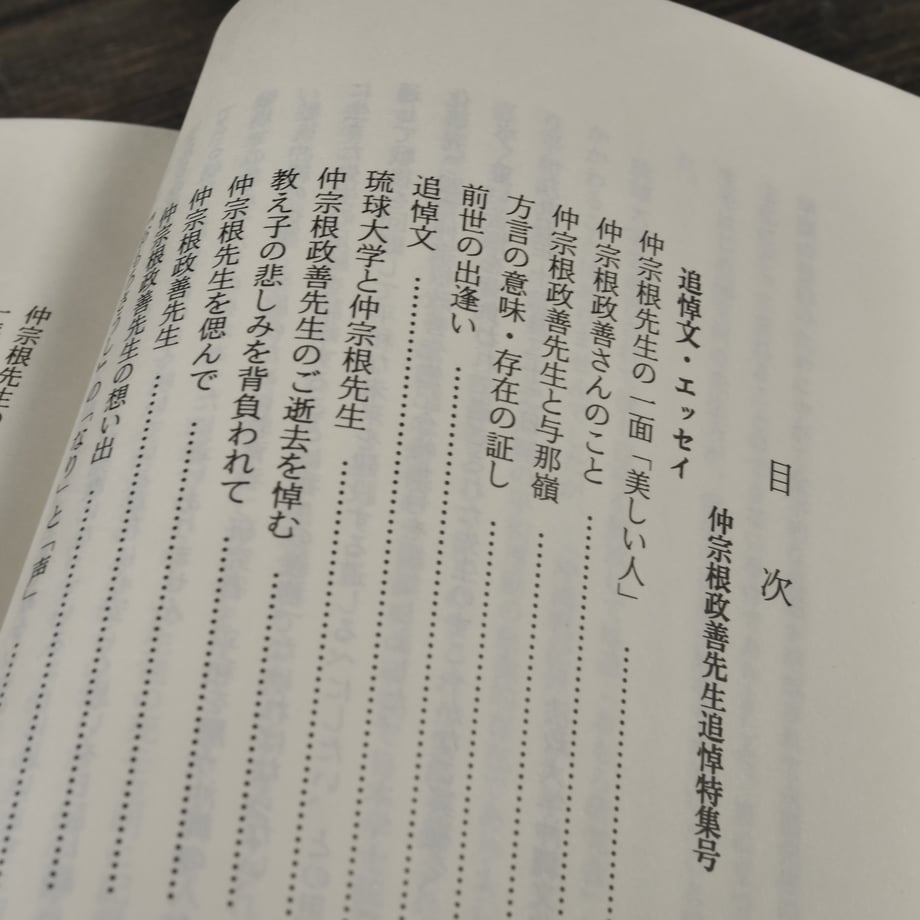 目次
仲宗根政善先生追悼特集号
追悼文・エッセイ
仲宗根先生の一面「美しい人」
仲宗根政善さんのこと
仲宗根政善先生と与那嶺
方言の意味・存在の証し
前世の出逢い
追悼文
琉球大学と仲宗根先生
仲宗根政善先生のご逝去を悼む
教え子の悲しみを背負われて
仲宗根先生を偲んで
仲宗根政善先生
仲宗根政善先生の想い出
の「なり」と「声」
仲宗根先生